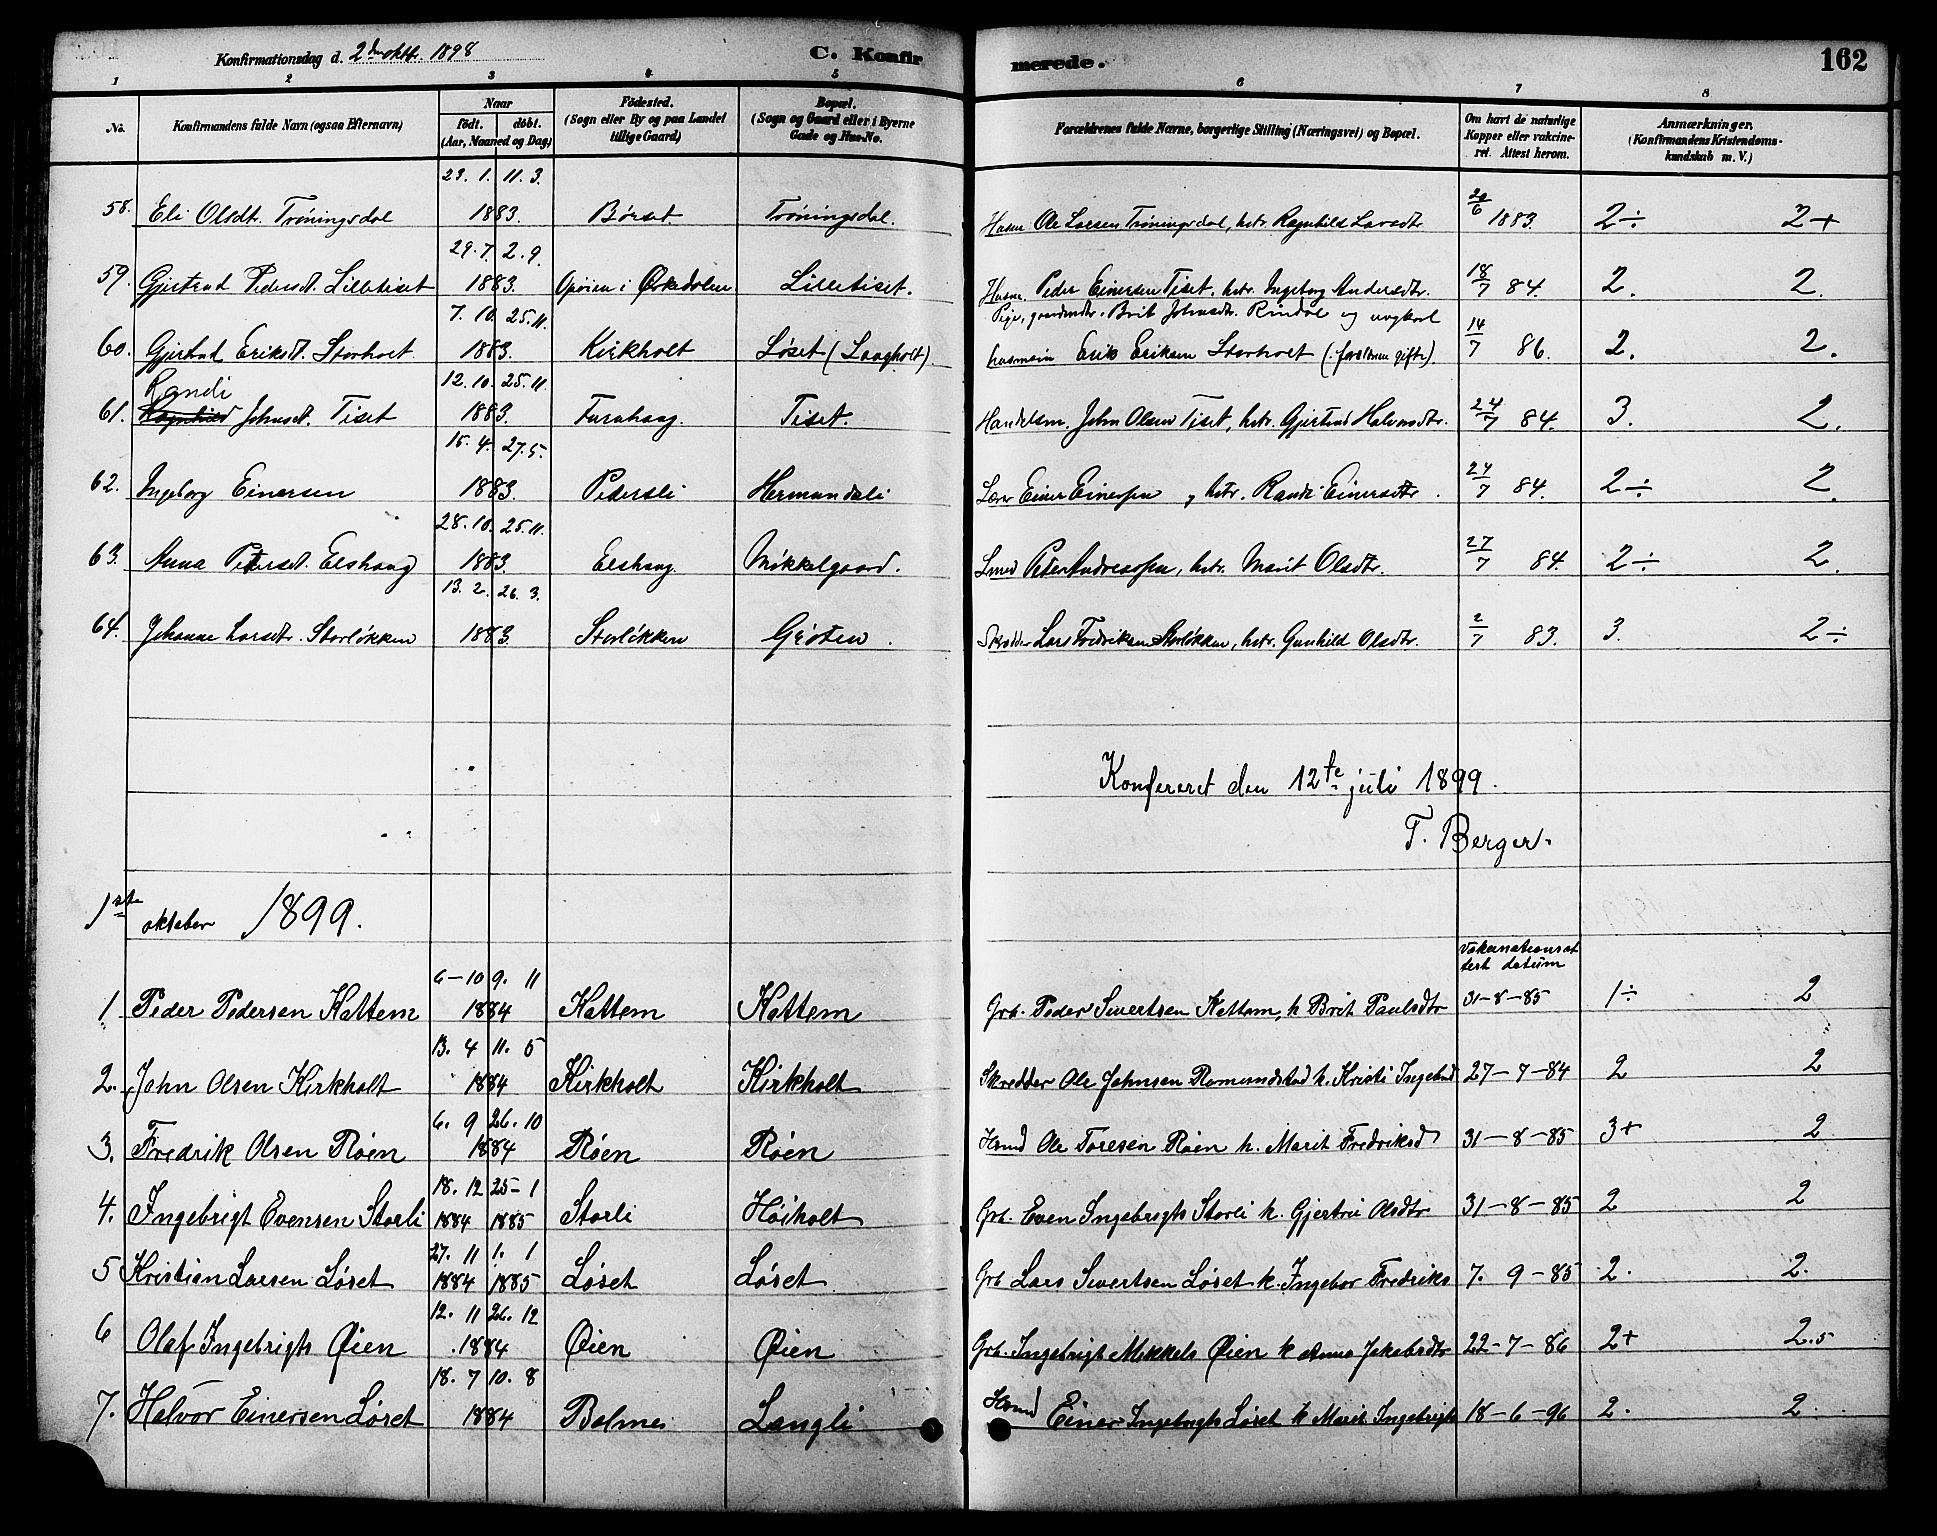 Konfirmationsdag d. 2den oktt. 1898 C. Konfirmerede. 162
1 2 3 4 5 6 7 8
No. Konfirmandens fulde Navn (ogsaa Efternavn) Naar födt. döbt. (Aar, Maaned og Dag) Födested. (Sogn eller By og paa Landet tillige Gaard) Bopæl. (Sogn og Gaard eller i Byerne Gade og Hus-No. Forældrenes fulde Navne, borgerlige Stilling (Næringsvei) og Bopæl. Om havt de naturlige Kopper eller vakcineret. Attest herom. Anmærkninger, (Konfirmandens Kristendomskundskab m. V.)
23. 1. 11. 3.
58. Eli Olsdt. Tröningsdal 1883. Börset Tröningsdal. Husm Ole Larsen Tröningsdal, hstr. Ragnhild Larsdtr 20/6 1883. 2÷ 2+
29. 7. 2. 9.
59. Gjertrud Pedersdt. Lilletiset 1883. Opöien i Örkedalen Lilletiset. Husm. Peder Einersen Tiset, hstr. Ingeborg Andersdtr. 18/7 84. 2. 2.
7. 10. 25. 11. Pige, Brit Johnsdtr. Rindal og ungkarl
60. Gjertrud Eriksdt. Storholt 1883. Kirkholt Löset (Langholt). husmann Erik Eriksen Storholt (forældrene gifte). 14/7 86. 2. 2.
Randi 12. 10. 25. 11.
61. Ragnhild Johnsdt. Tiset 1883. Furuhaug. Tiset. Handelsm. John Olsen Tiset, hstr. Gjertrud Halvorsdtr. 24/7 84. 3. 2.
15. 4. 27. 5.
62. Ingeborg Einersen 1883. Pedersli Hermundsli Lærer Einer Einersen, hstr. Randi Einersdtr. 24/7 84. 2÷ 2.
28. 10. 25. 11.
63. Anna Petersdt. Elshaug 1883. Elshaug. Mikkelgaard. Smed Peter Andreassen, hstr. Marit Olsdtr. 27/7 84. 2÷ 2.
13. 2. 26. 3.
64. Johanne Larsdtr. Storlökken 1883. Storlökken Gröten. Skrædder Lars Fredriksen Storlökken, hstr. Gunhild Olsdtr. 2/7 83. 3. 2÷
Konfereret den 12te juli 1899.
T. Berger.
1ste oktober 1899.
Vakcinationsattest datum
6–10 9. 11
1 Peder Pedersen Kattem 1884 Kattem Kattem Grb. Peder Sivertsen Kattem, h Brit Paulsdtr 31–8–85 1÷ 2
13. 4 11. 5
2. John Olsen Kirkholt 1884 Kirkholt Kirkholt Skredder Ole Johnsen Romundstad h. Kristi Ingebrd 27–7–84 2 2
6. 9 26. 10
3. Fredrik Olsen Röen 1884 Röen Röen Hsmd Ole Toresen Röen h. Marit Fredriksd 31–8–85 3+ 2
18. 12 25–1
4. Ingebrigt Evensen Storli 1884 1885 Storli Höiholt Grb. Even Ingebrigts Storli h. Gjertru Olsdtr 31–8–85 2 2
27. 11 1. 1
5 Kristian Larsen Löset 1884 1885 Löset Löset Grb Lars Sivertsen Löset h. Ingebor Fredriks 7. 9–85 2. 2.
12. 11 26. 12
6 Olaf Ingebrigts Øien 1884 Øien Øien Grb. Ingebrigt Mikkels Øien h Anna Jakobsdtr 22–7–86 2+ 2.5
18. 7 10. 8
7. Halvor Einersen Löset 1884 Bolmes Langli Hsmd Einer Ingebrigts Löset h Marit Ingebrigts 18–6–96 2. 2.